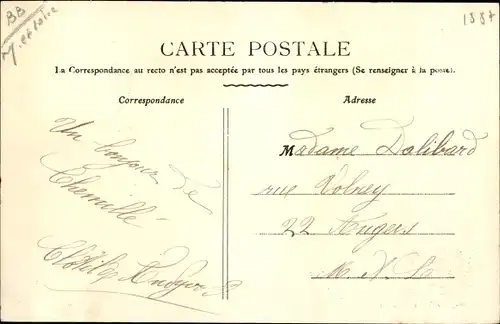 BB
1587
CARTE POSTALE
La Correspondance au recto n'est pas acceptée par tous les pays étrangers (Se renseigner à la poste).
Correspondance
Un bonjour de
Chemillé
Clotilde
Adresse
Madame Dalibard
rue Volney
22 Angers
M. & L.